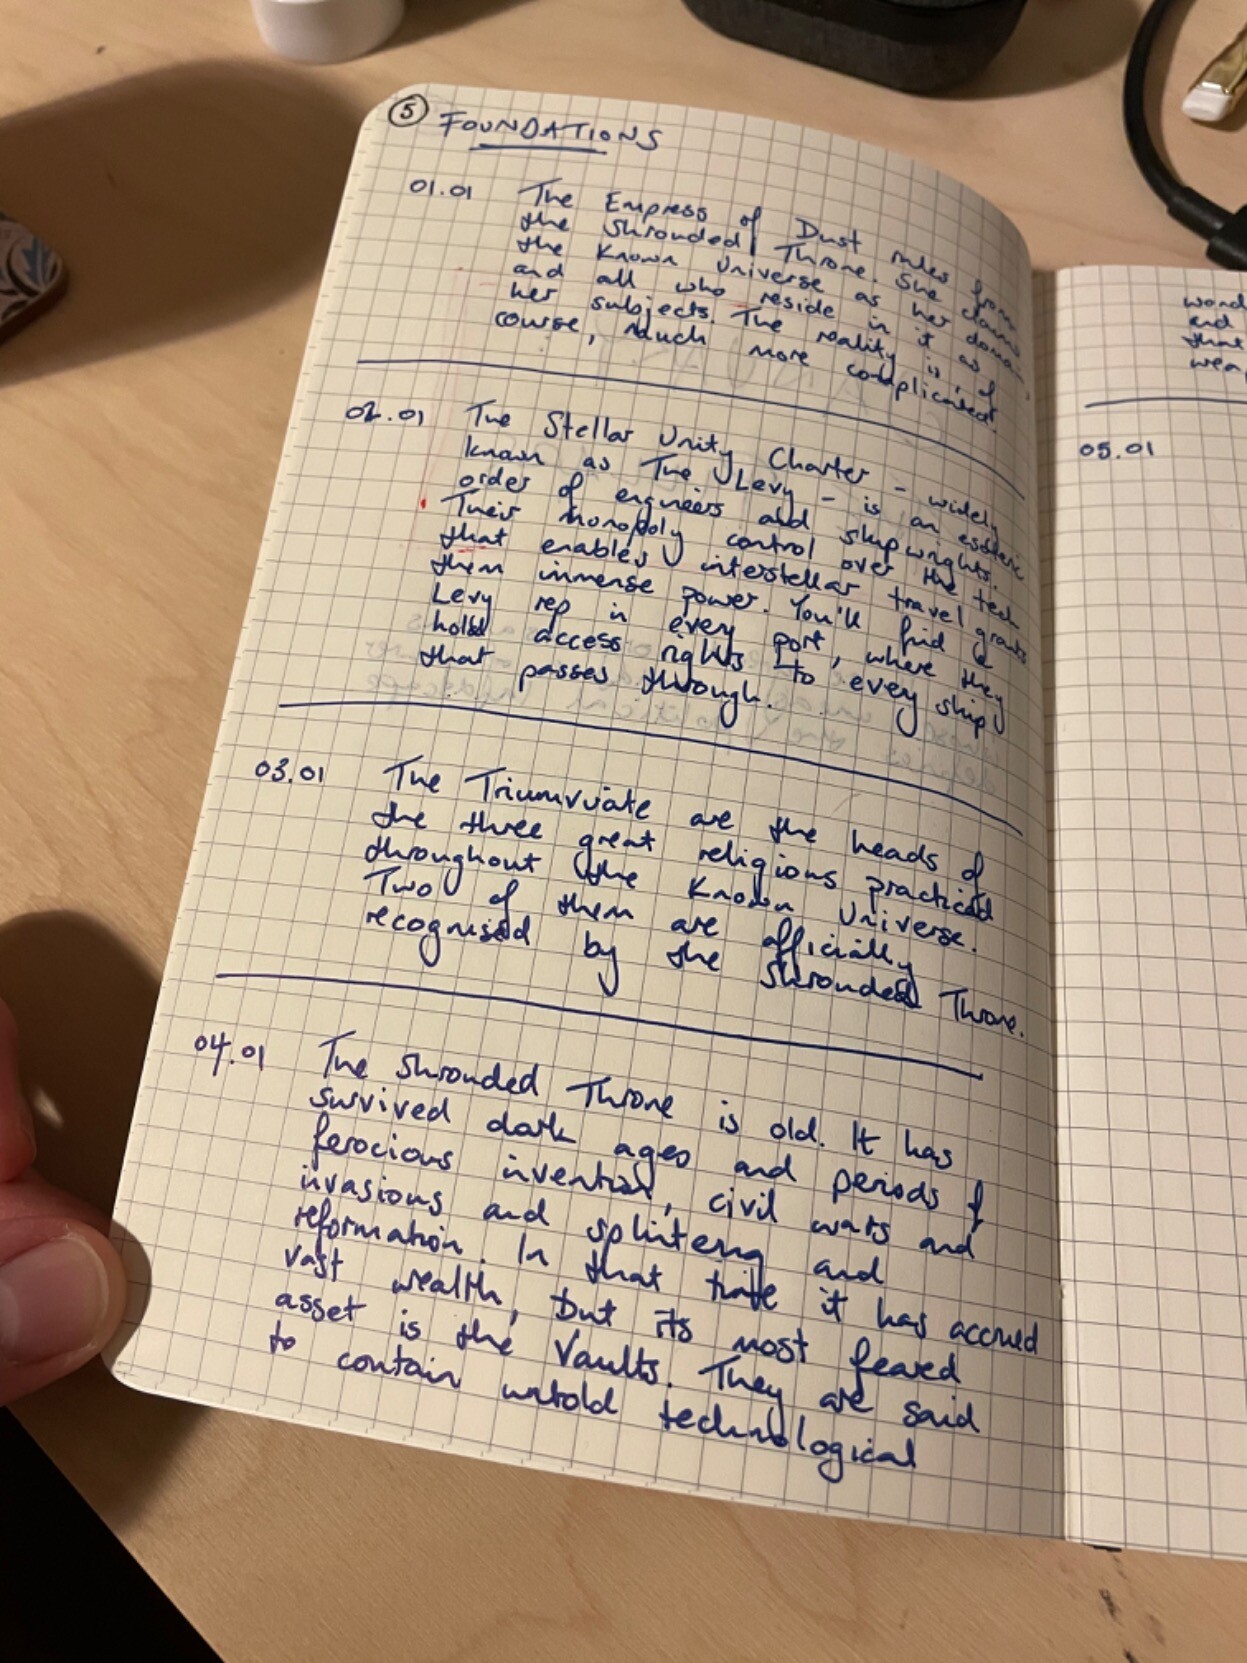 5 FOUNDATIONS
01.01 The Empress of Dust rules from
the Shrouded Throne. She claims
the Known Universe as her domain,
and all who reside in it as
her subjects. The reality is, of
course, much more complicated.
02.01 The Stellar Unity Charter - widely
known as The Levy - is an esoteric
order of engineers and shipwrights.
Their monopoly control over the tech
that enables interstellar travel grants
them immense power. You'll find a
Levy rep in every port, where they
hold access rights to every ship
that passes through.
03.01 The Triumvirate are the heads of
the three great religions practiced
throughout the Known Universe.
Two of them are officially
recognised by the Shrouded Throne.
04.01 The Shrouded Throne is old. It has
survived dark ages and periods of
ferocious invention, civil wars and
invasions and splintering and
reformation. In that time it has accrued
vast wealth, but its most feared
asset is the Vaults. They are said
to contain untold technological
and
that
05.01